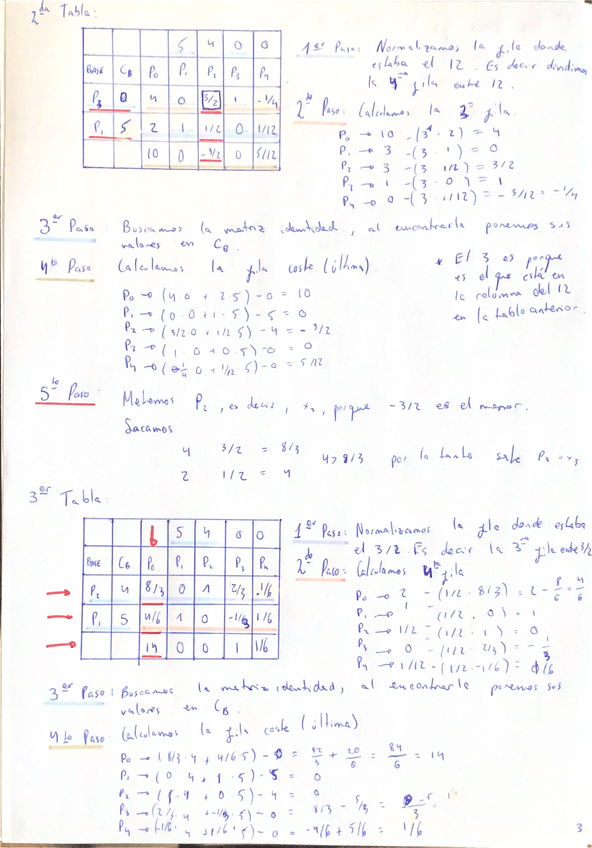 2da Tabla:
5 4 0 0
BASE CB P0 P1 P2 P3 P4
P3 0 4 0 3/2 1 -1/4
P1 5 2 1 1/2 0 1/12
10 0 -3/2 0 5/12
1er Paso: Normalizamos la fila donde
estaba el 12. Es decir dividimos
la 4ta fila entre 12.
2do Paso: Calculamos la 3ª fila.
P0 → 10 - (3* · 2) = 4
P1 → 3 - (3 · 1) = 0
P2 → 3 - (3 · 1/2) = 3/2
P3 → 1 - (3 · 0) = 1
P4 → 0 - (3 · 1/12) = -3/12 = -1/4
3er Paso: Buscamos la matriz identidad, al encontrarla ponemos sus
valores en CB.
4to Paso: Calculamos la fila coste (última).
P0 → (4·0 + 2·5) - 0 = 10
P1 → (0·0 + 1·5) - 5 = 0
P2 → (3/2·0 + 1/2·5) - 4 = -3/2
P3 → (1·0 + 0·5) - 0 = 0
P4 → (-1/4·0 + 1/12·5) - 0 = 5/12
* El 3 es porque
es el que está en
la columna del 12
en la tabla anterior.
5to Paso: Metemos P2, es decir, x2, porque -3/2 es el menor.
Sacamos
4 3/2 = 8/3
2 1/2 = 4
4 > 8/3 por lo tanto sale P3 = x3
3er Tabla:
6 5 4 0 0
BASE CB P0 P1 P2 P3 P4
P2 4 8/3 0 1 2/3 -1/6
P1 5 4/6 1 0 -1/3 1/6
14 0 0 1 1/6
1er Paso: Normalizamos la fila donde estaba
el 3/2. Es decir la 3ra fila entre 3/2
2do Paso: Calculamos 4ta fila
P0 → 2 - (1/2 · 8/3) = 2 - 8/6 = 4/6
P1 → 1 - (1/2 · 0) = 1
P2 → 1/2 - (1/2 · 1) = 0
P3 → 0 - (1/2 · 2/3) = -1/3
P4 → 1/12 - (1/2 · -1/6) = 1/6
3er Paso: Buscamos la matriz identidad, al encontrarla ponemos sus
valores en CB.
4to Paso: Calculamos la fila coste (última)
P0 → (8/3·4 + 4/6·5) - 0 = 32/3 + 20/6 = 84/6 = 14
P1 → (0·4 + 1·5) - 5 = 0
P2 → (1·4 + 0·5) - 4 = 0
P3 → (2/3·4 + -1/3·5) - 0 = 8/3 - 5/3 =
P4 → (-1/6·4 + 1/6·5) - 0 = -4/6 + 5/6 = 1/6
3